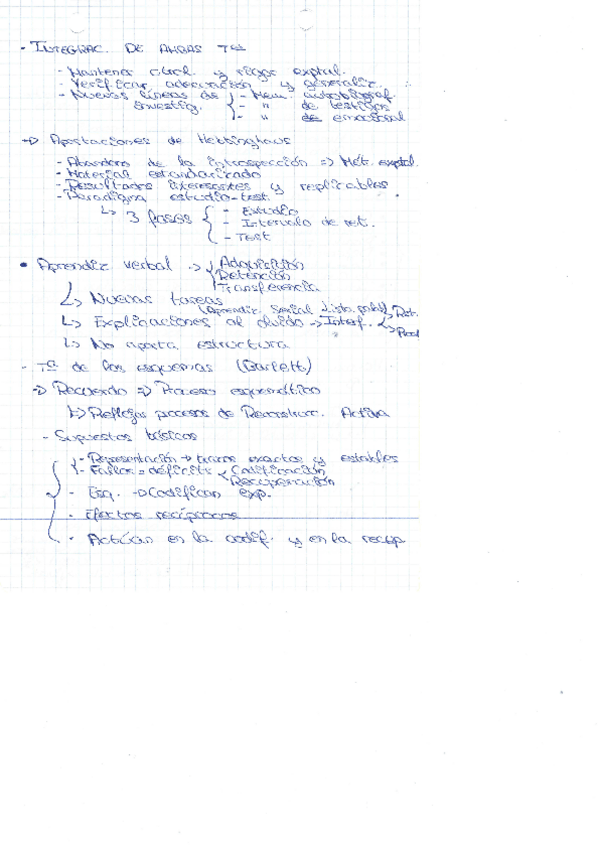 - INTEGRAC. DE AMBAS Tas
- Mantener cuid. y rigor exptal.
- Verificar adecuación y generaliz.
- Nuevas líneas de investig. { - Mem. autobiograf.
- " de testigos
- " de emocional
-> Aportaciones de Hebbinghaus
- Abandono de la introspección => Mét. exptal.
- Material estandarizado
- Resultados interesantes y replicables
- Paradigma estudio-test.
↳ 3 fases { - Estudio
- Intervalo de ret.
- Test
• Aprendiz verbal -> { Adquisición
Retención
Transferencia
↳ Nuevas tareas
(Aprendiz. Serial, Lista, palab)
↳ Explicaciones al olvido -> Interf. < Ret.
Proact
↳ No aporta estructura
- Tª de los esquemas (Barlett)
-> Recuerdo => Proceso esquemático
↳ Reflejas procesos de Reconstruc. Activa
- Supuestos básicos
- Representación -> trazos exactos y estables
- Fallos = déficits < Codificación
Recuperación
- Esq. -> Codifican exp.
- Efectos recíprocos
- Actúan en la codif. y en la recup